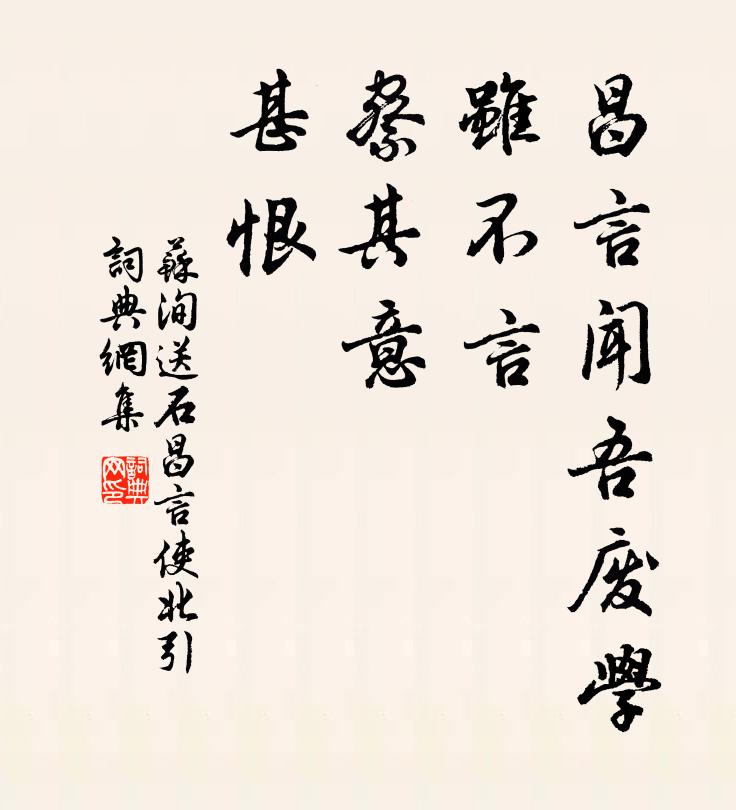 昌言聞吾廢學
雖不言
察其意
甚恨
蘇洵送石昌言使北引
詞典網集
詞典
网印